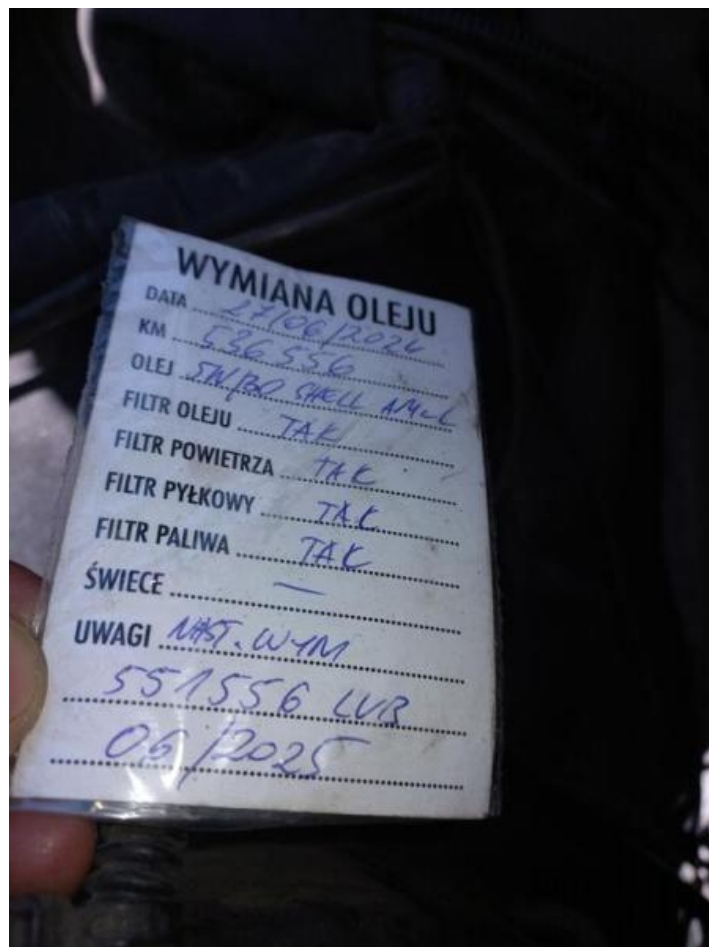 WYMIANA OLEJU
DATA 27/06/2024
KM 536556
OLEJ 5W/30 SHELL
FILTR OLEJU TAK
FILTR POWIETRZA TAK
FILTR PYŁKOWY TAK
FILTR PALIWA TAK
ŚWIECE —
UWAGI NAST. WYM
551556 LUB
06/2025